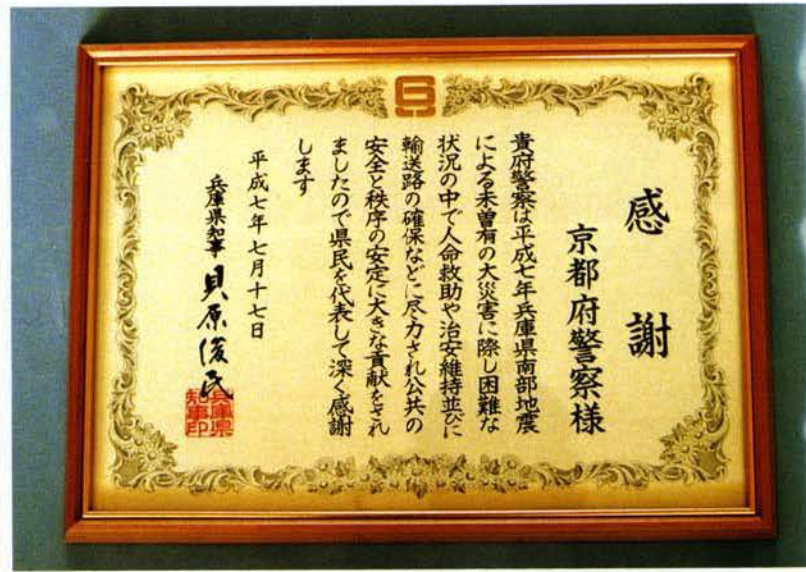 感謝
京都府警察様
貴府警察は平成七年兵庫県南部地震
による未曽有の大災害に際し困難な
状況の中で人命救助や治安維持並びに
輸送路の確保などに尽力され公共の
安全と秩序の安定に大きな貢献をされ
ましたので県民を代表して深く感謝
します
平成七年七月十七日
兵庫県知事 貝原俊民
兵庫県
知事印